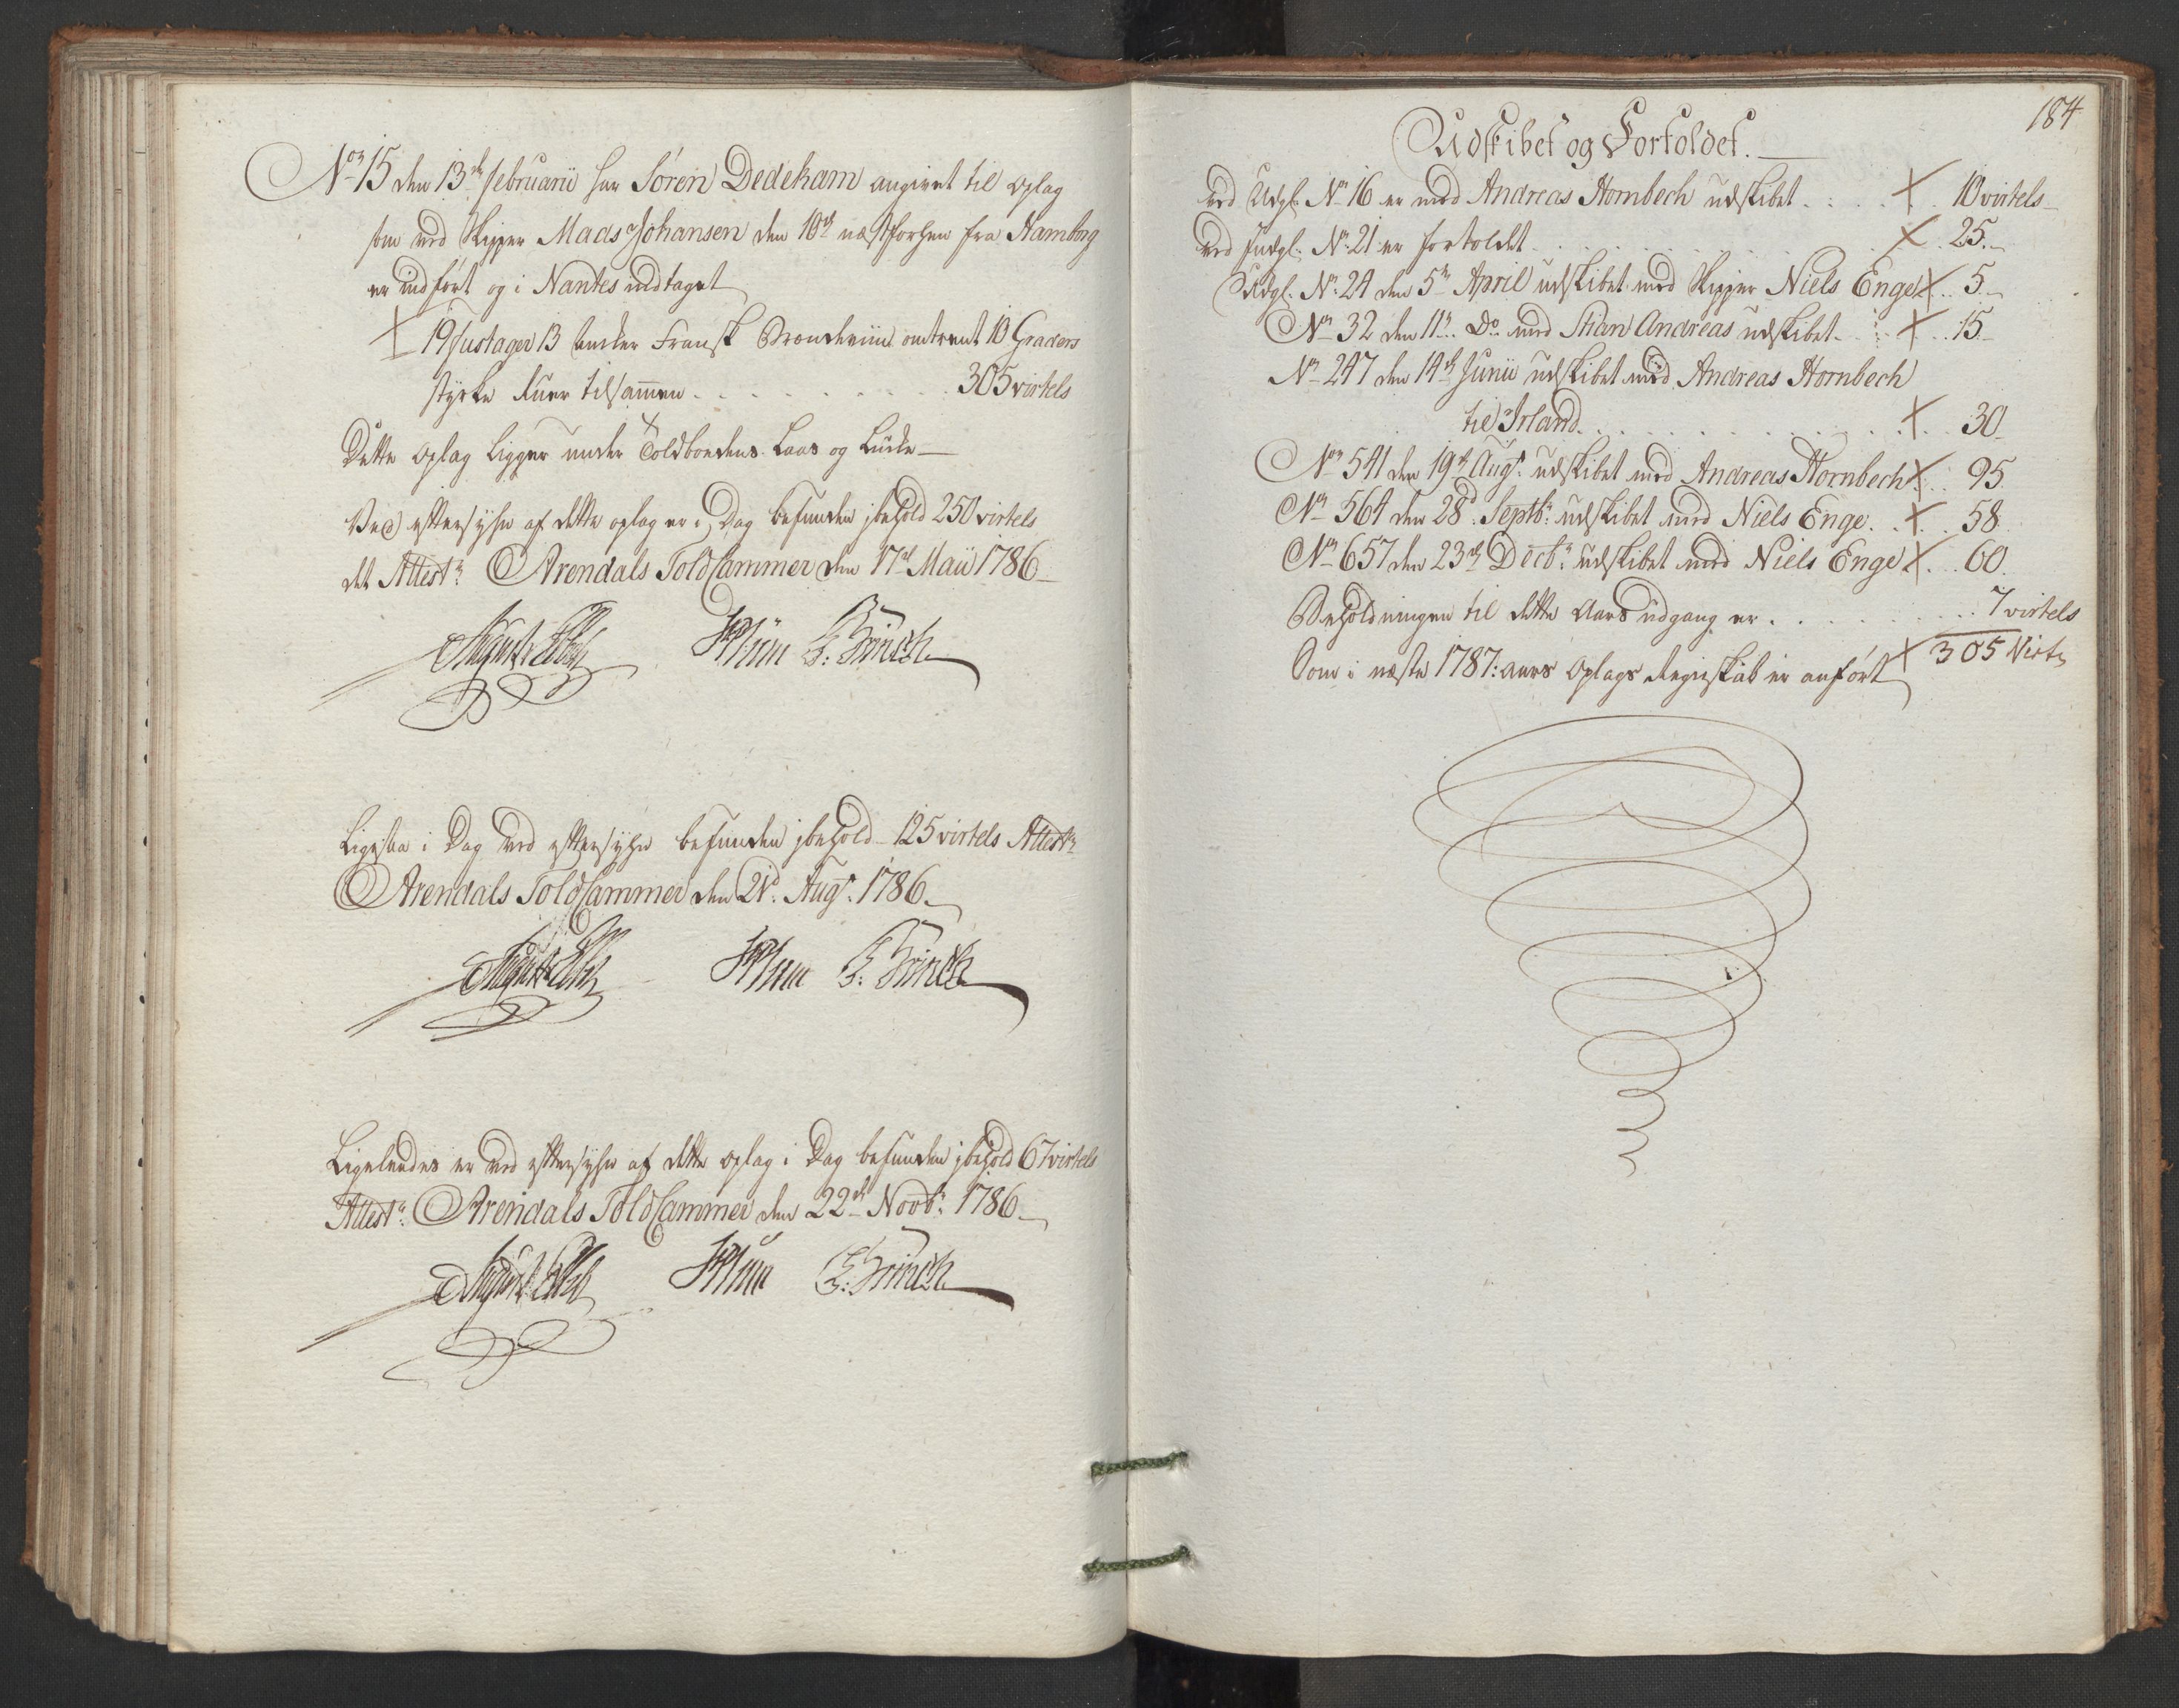 No 15 den 13de februarii har Sören Dedekam angivet til oplag
som med Skipper Mads Johansen den 10de næstforhen fra Hamborg
er indfört og i Nantes indtaget
19 fustager 13 Anker Fransk Brændeviin omtrent 10 Graders
styrke Kuer tilsammen . . . 305 virtels
Dette oplag ligger under Toldboedens Laas og Lukke
Ved eftersyhn af dette oplag er i Dag befunden jbehold 250 virtels
det Attestr Arendals ToldCammer den 17de Maii 1786
HPlum F: Brinch
Ligesaa i Dag ved eftersyhn befunden jbehold 125 virtels Attestr
Arendals ToldCammer den 21d Augt: 1786
HPlum F: Brinch
Ligeledes er ved eftersyhn af dette oplag i Dag befunden jbehold 67 virtels
Attestr: Arendals ToldCammer den 22de Novbr: 1786
HPlum F: Brinch
184
Udskibet og Fortoldet.
ved Udgl: No 16 er med Andreas Hornbech udskibet . . . 10 virtels
ved Indgl: No 21 er fortoldet . . . 25
Udgl: No 24 den 5te April udskibet med Skipper Niels Enge . . 5
No 32 den 11te Do med Stian Andreas udskibet . . . 15
No 247 den 14de Junii udskibet med Andreas Hornbech
til Irland . . . 30
No 541 den 19de Augt: udskibet med Andreas Hornbech . . 95
No 564 den 28d Septbr: udskibet med Niels Enge . . 58
No 657 den 23de Decbr: udskibet med Niels Enge . . 60
Beholdningen til dette Aars udgang er . . . 7 virtels
305 Virts
Som i næste 1787: aars Oplags Regnskab er anfört